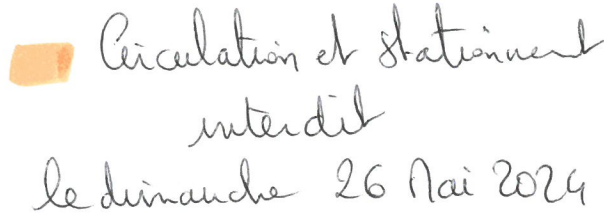 Circulation et stationnement
interdit
le dimanche 26 Mai 2024